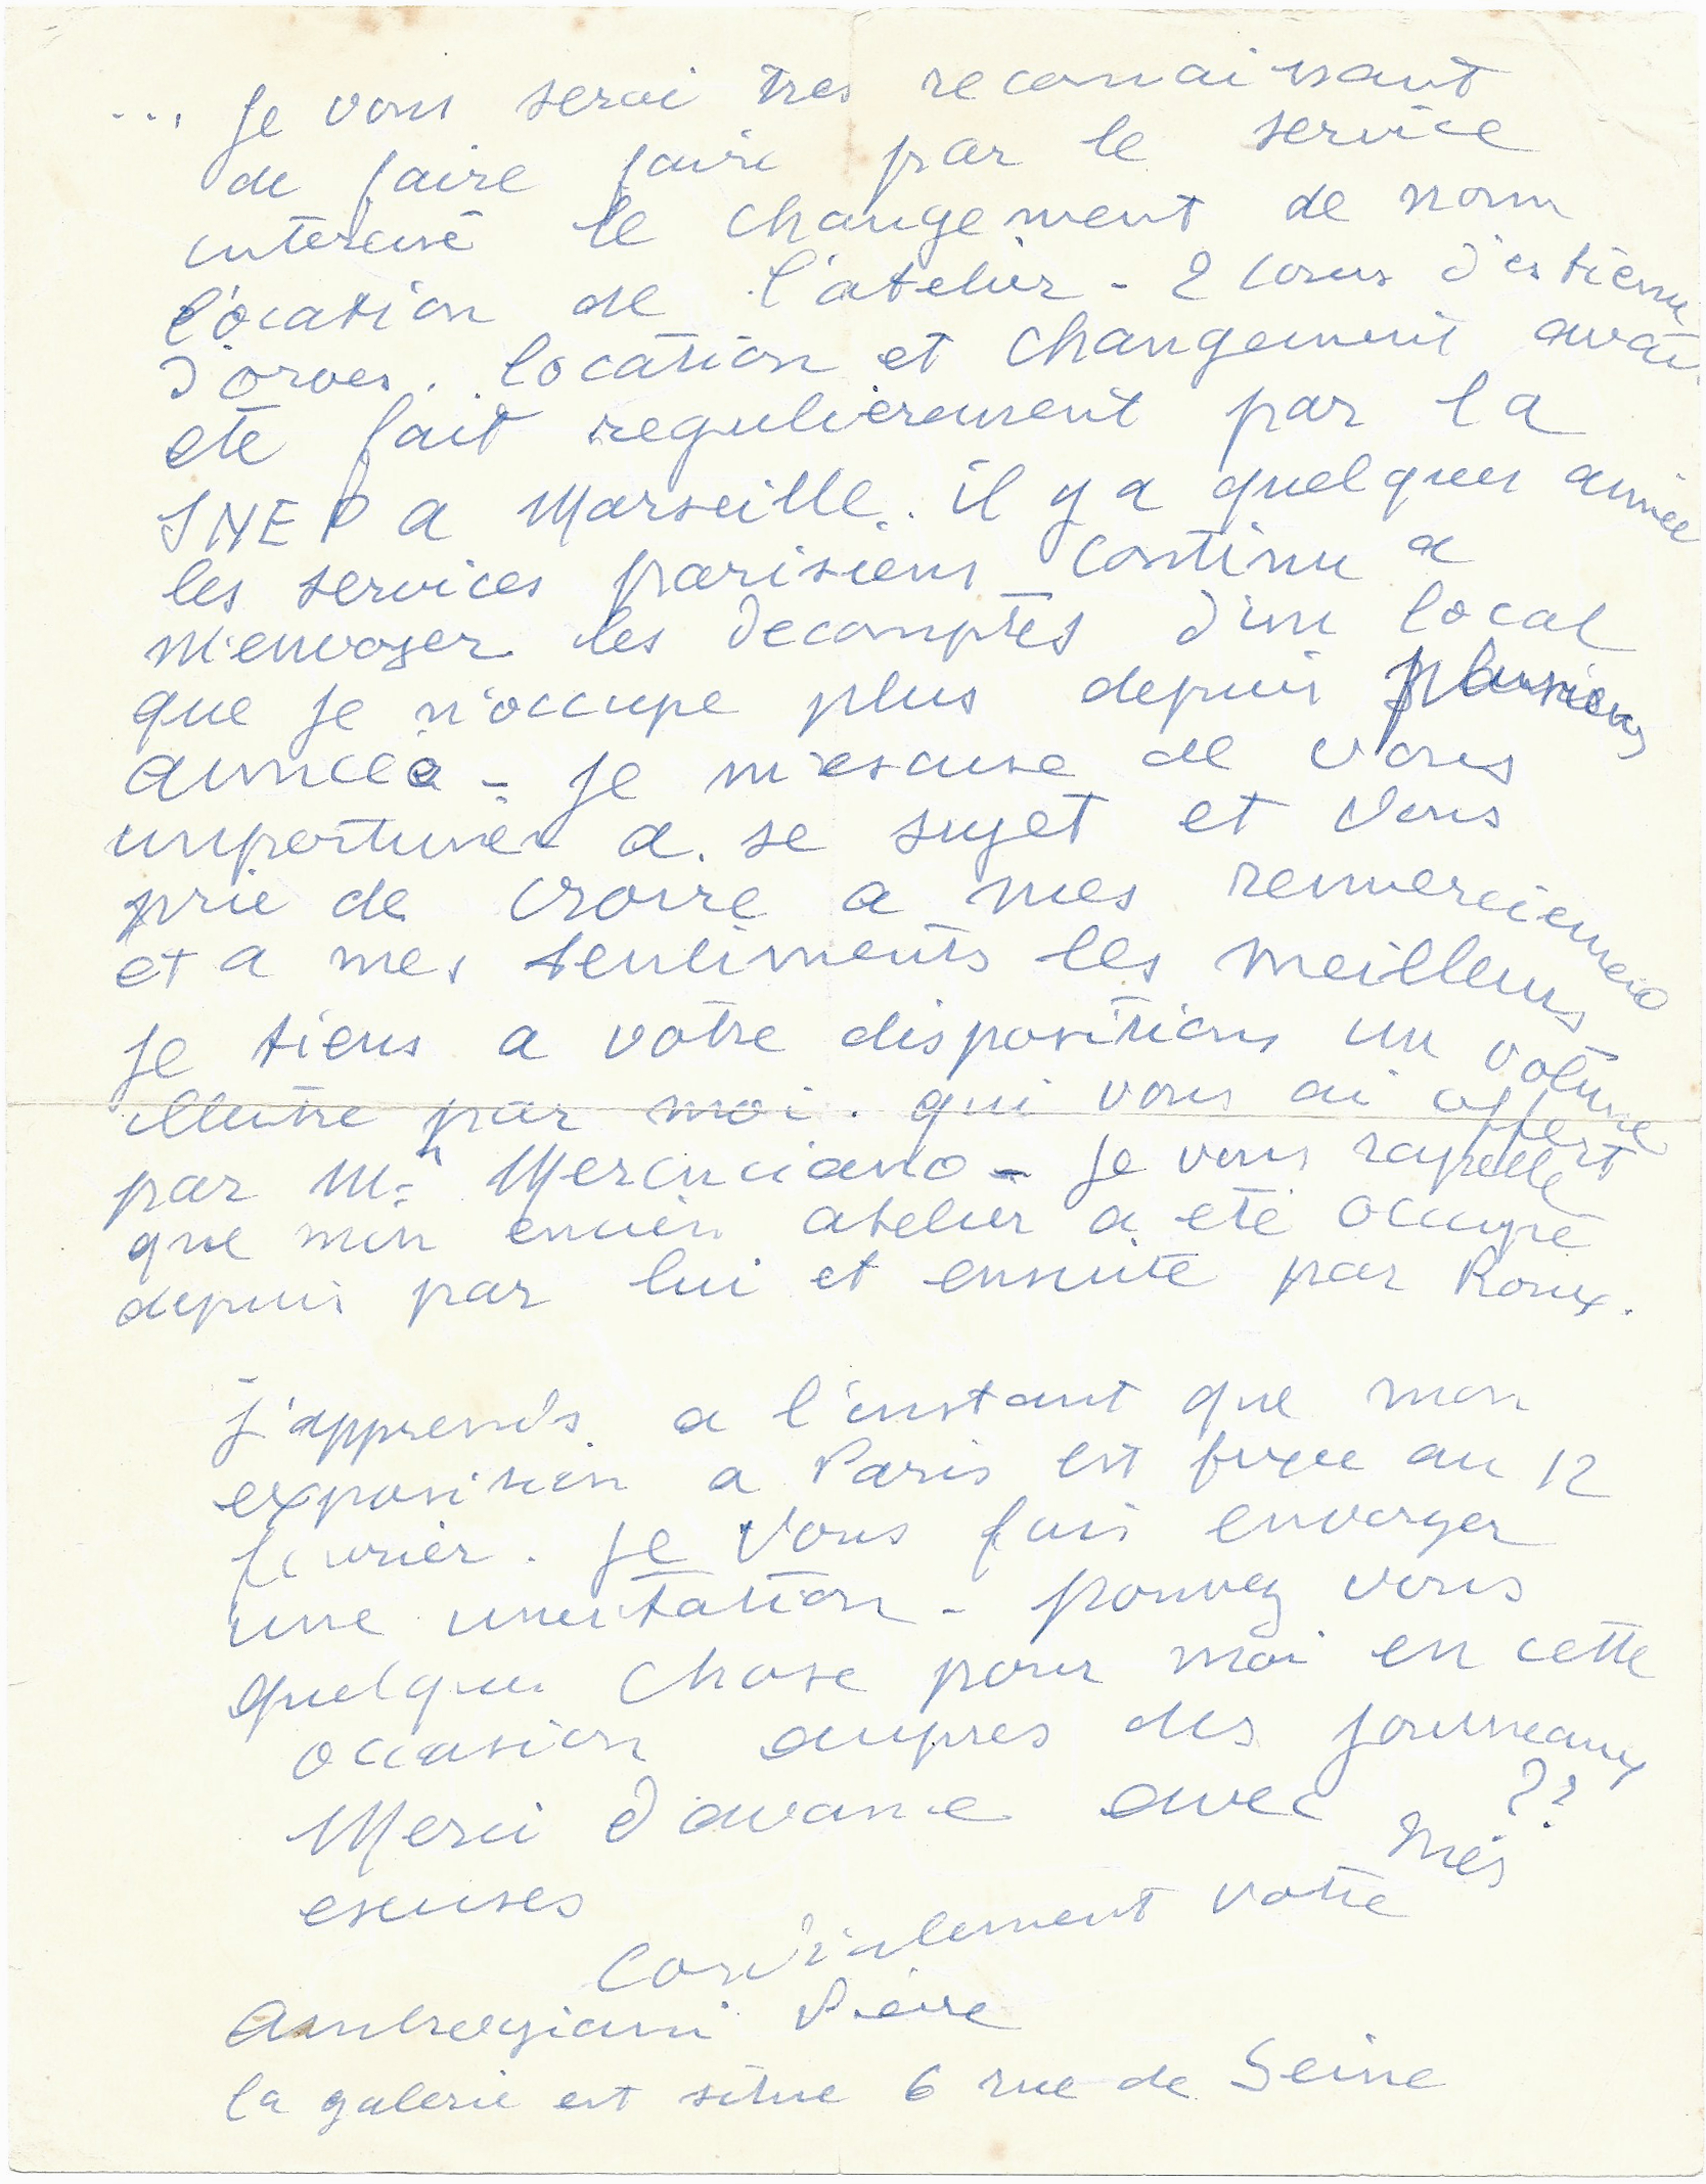 ... je vous serai tres reconnaissant
de faire faire par le service
interessé le changement de nom
location de l'atelier - 2 cours d'estienne
d'orves. location et changement avait
eté fait regulierement par la
SNEP a Marseille.. il y a quelques année
les services parisiens continu a
m'envoyer les decomptes d'un local
que je n'occupe plus depuis plusieurs
années - je m'escuse de vous
importuner a se sujet et vous
prie de croire a mes remerciements
et a mes sentiments les meilleurs
je tiens a votre dispositions un volume
illustre par moi. qui vous ai offert
par Mr - je vous rappelle
que mon encien atelier a eté occupé
depuis par lui et ensuite par Roux.
j'apprends a l'instant que mon
exposition a Paris est fixee au 12
fevrier. je vous fais envoyer
une invitation - pouvez vous
quelque chose pour moi en cette
occasion aupres des journeaux
??
Merci d'avance avec mes
escuses
Cordialement votre
Ambrogiani Pierre
la galerie est situe 6 rue de Seine